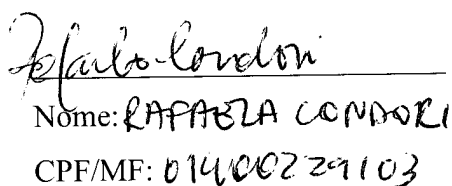 Rafaela Condori
Nome: RAFAELA CONDORI
CPF/MF: 01400229103